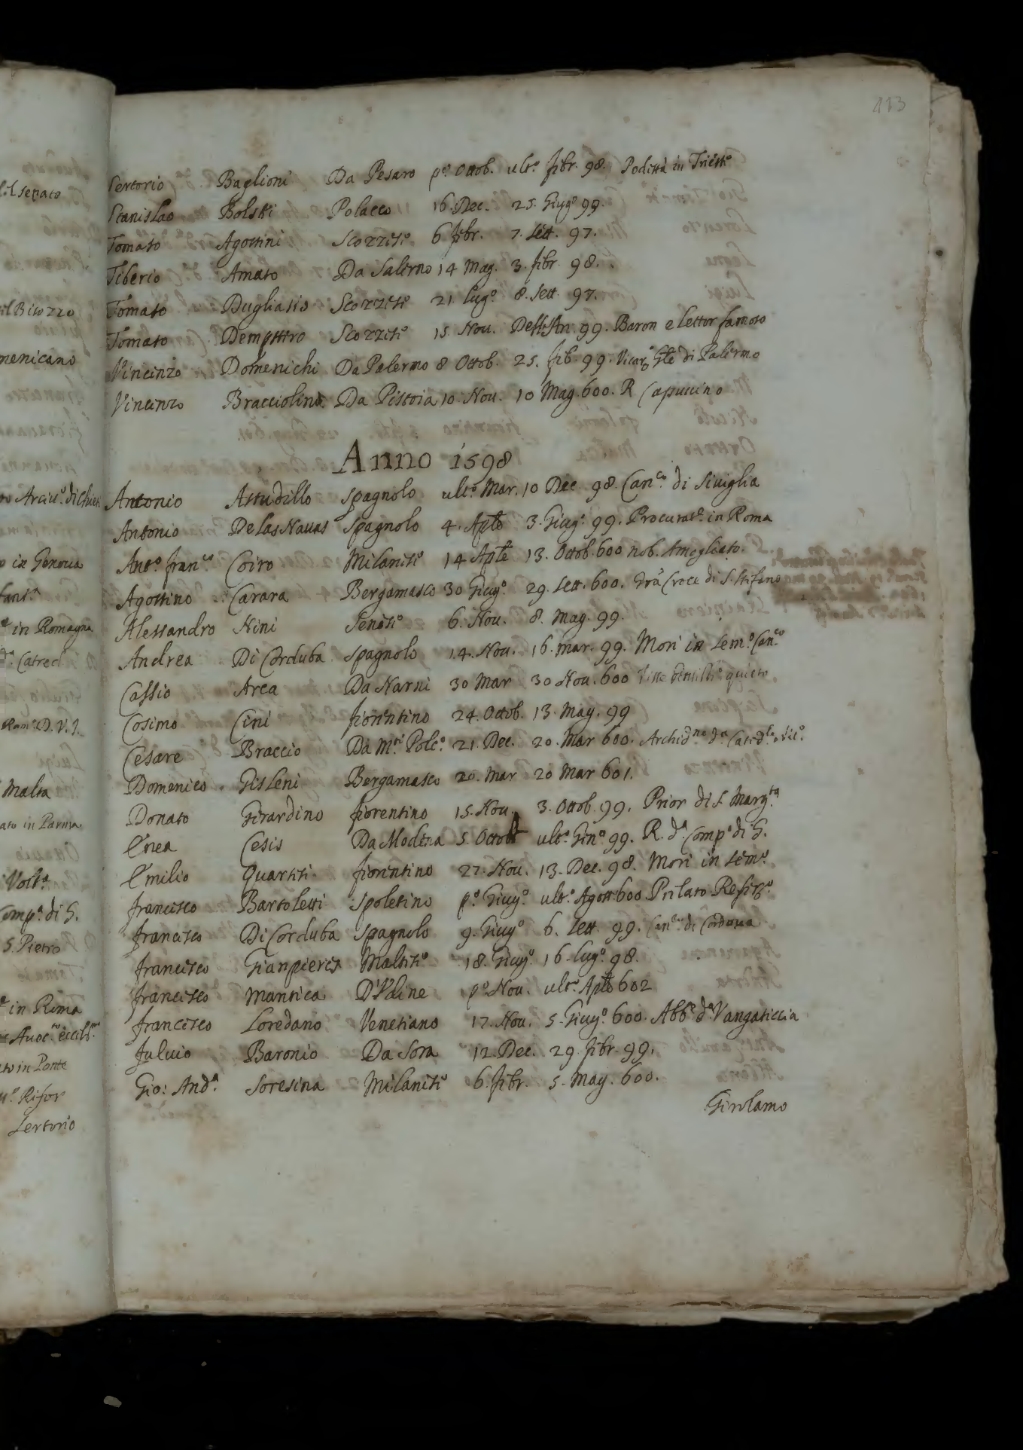 113
Sertorio Baglioni Da Pesaro p.º Ottob. ult.º fibr. 98. Podistà in Triest.º
Stanislao Bolski Polacco 16. Dec. 25. Giug.º 99
Tomaso Agostini Scozzis.º 6 fibr. 7. Sett. 97.
Tiberio Amato Da Salerno 14 Mag. 3. fibr 98.
Tomaso Dugliasio Scozzis.º 21 Lug.º 8. Sett 97.
Tomaso Dempstro Scozzis.º 15 Nou. 99. Baron e lettor famoso
Vincenzo Domenichi Da Palermo 8 Ottob. 25. fib 99. di Palermo
Vincenzo Bracciolino Da Pistoia 10. Nou. 10 Mag. 600. R Capuccino
Anno 1598
Antonio Astudillo Spagnolo ult.º Mar. 10 Dec 98. Can.co di Siviglia
Antonio De Las Nauas Spagnolo 4. Aple 3. Giug.º 99. Procurat.º in Roma
Ant.º fran.co Coiro Milanes.º 14 Aple 13. Ottob. 600 nob. Amogliato.
Agostino Carara Bergamasco 30 Giug.º 29. Sett. 600. Grã Croce di S. Stefano
Alessandro Nini Senes.º 6. Nou. 8. Mag. 99.
Andrea Di Corduba Spagnolo 14. Nou. 16. mar. 99. Mori in Sem.º Can.co
Cassio Area Da Narni 30 Mar 30 Nou. 600
Cosimo Cini fiorentino 24. Ottob. 13. Mag. 99
Cesare Braccio Da M.te Polc.º 21. Dec. 20. Mar 600.
Domenico Gisleni Bergamasco 20. Mar 20 Mar 601.
Donato Girardino fiorentino 15. Nou. 3. Ottob. 99. Prior di S. Marg.ta
Enea Cesis Da Modena 5. Ottob ult.º Gen.º 99. R. d.ª Comp.ª di G.
Emilio Quartesi fiorentino 27. Nou. 13. Dec. 98. Mori in Sem.º
francesco Bartoletti Spoletino p.º Giug.º ult.º Agost 600 Prilato
francesco Di Corduba Spagnolo 9. Giug.º 6. Sett 99. Can.co di Corduua
francesco Gianpieres Maltes.º 18. Giug.º 16. Lug.º 98.
francesco Mantica D'Vdine p.º Nou. ult.º Aple 602
francesco Loredano Venetiano 17. Nou. 5. Giug.º 600. Abb.e d.ª Vangaticcia
fuluio Baronio Da Sora 12. Dec. 29. fibr. 99.
Gio: And.ª Soresina Milanes.º 6. fibr. 5. Mag. 600.
Girolamo
il Senato
il Bisozzo
menicano
in Genoua
in Romagna
Malta
ato in Parma
Comp.ª di G.
S. Pietro
in Rima
Sertorio